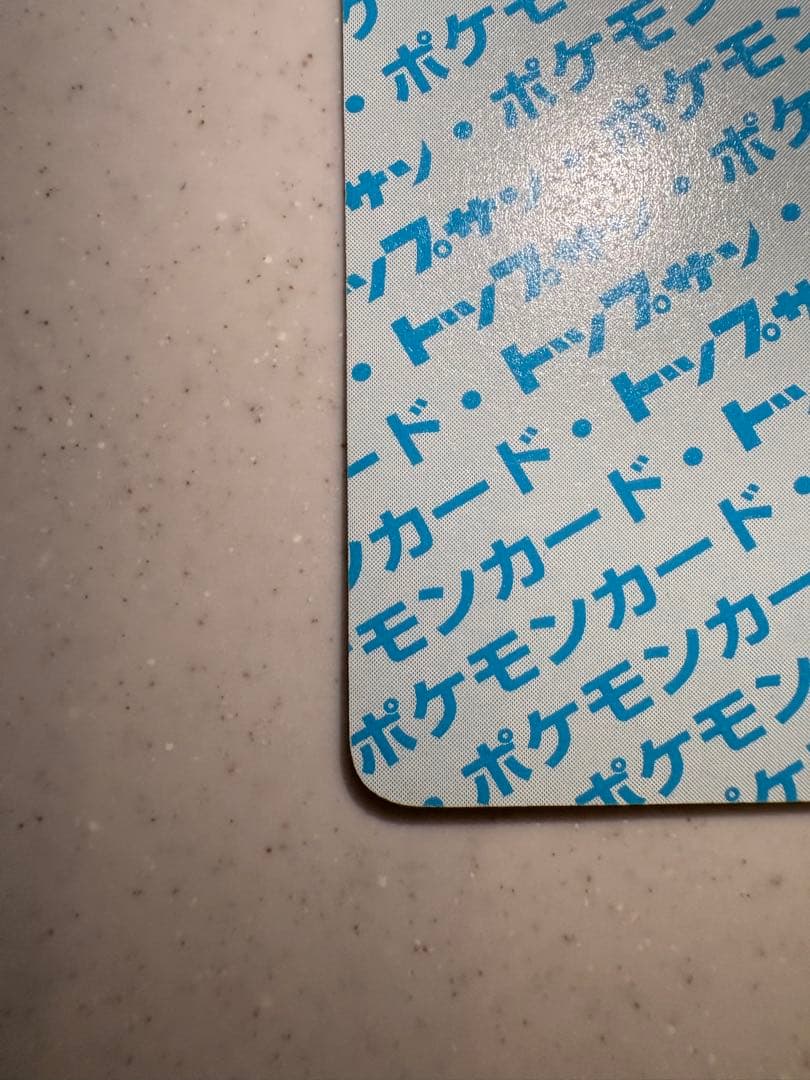 ・ポケモ
サン・ポケモン
ップサン・ポケモン
・トップサン・ポケ
ード・トップサン・
ンカード・トップサ
モンカード・ト
ポケモンカード・
・ポケモンカー
ポケモン
ケ